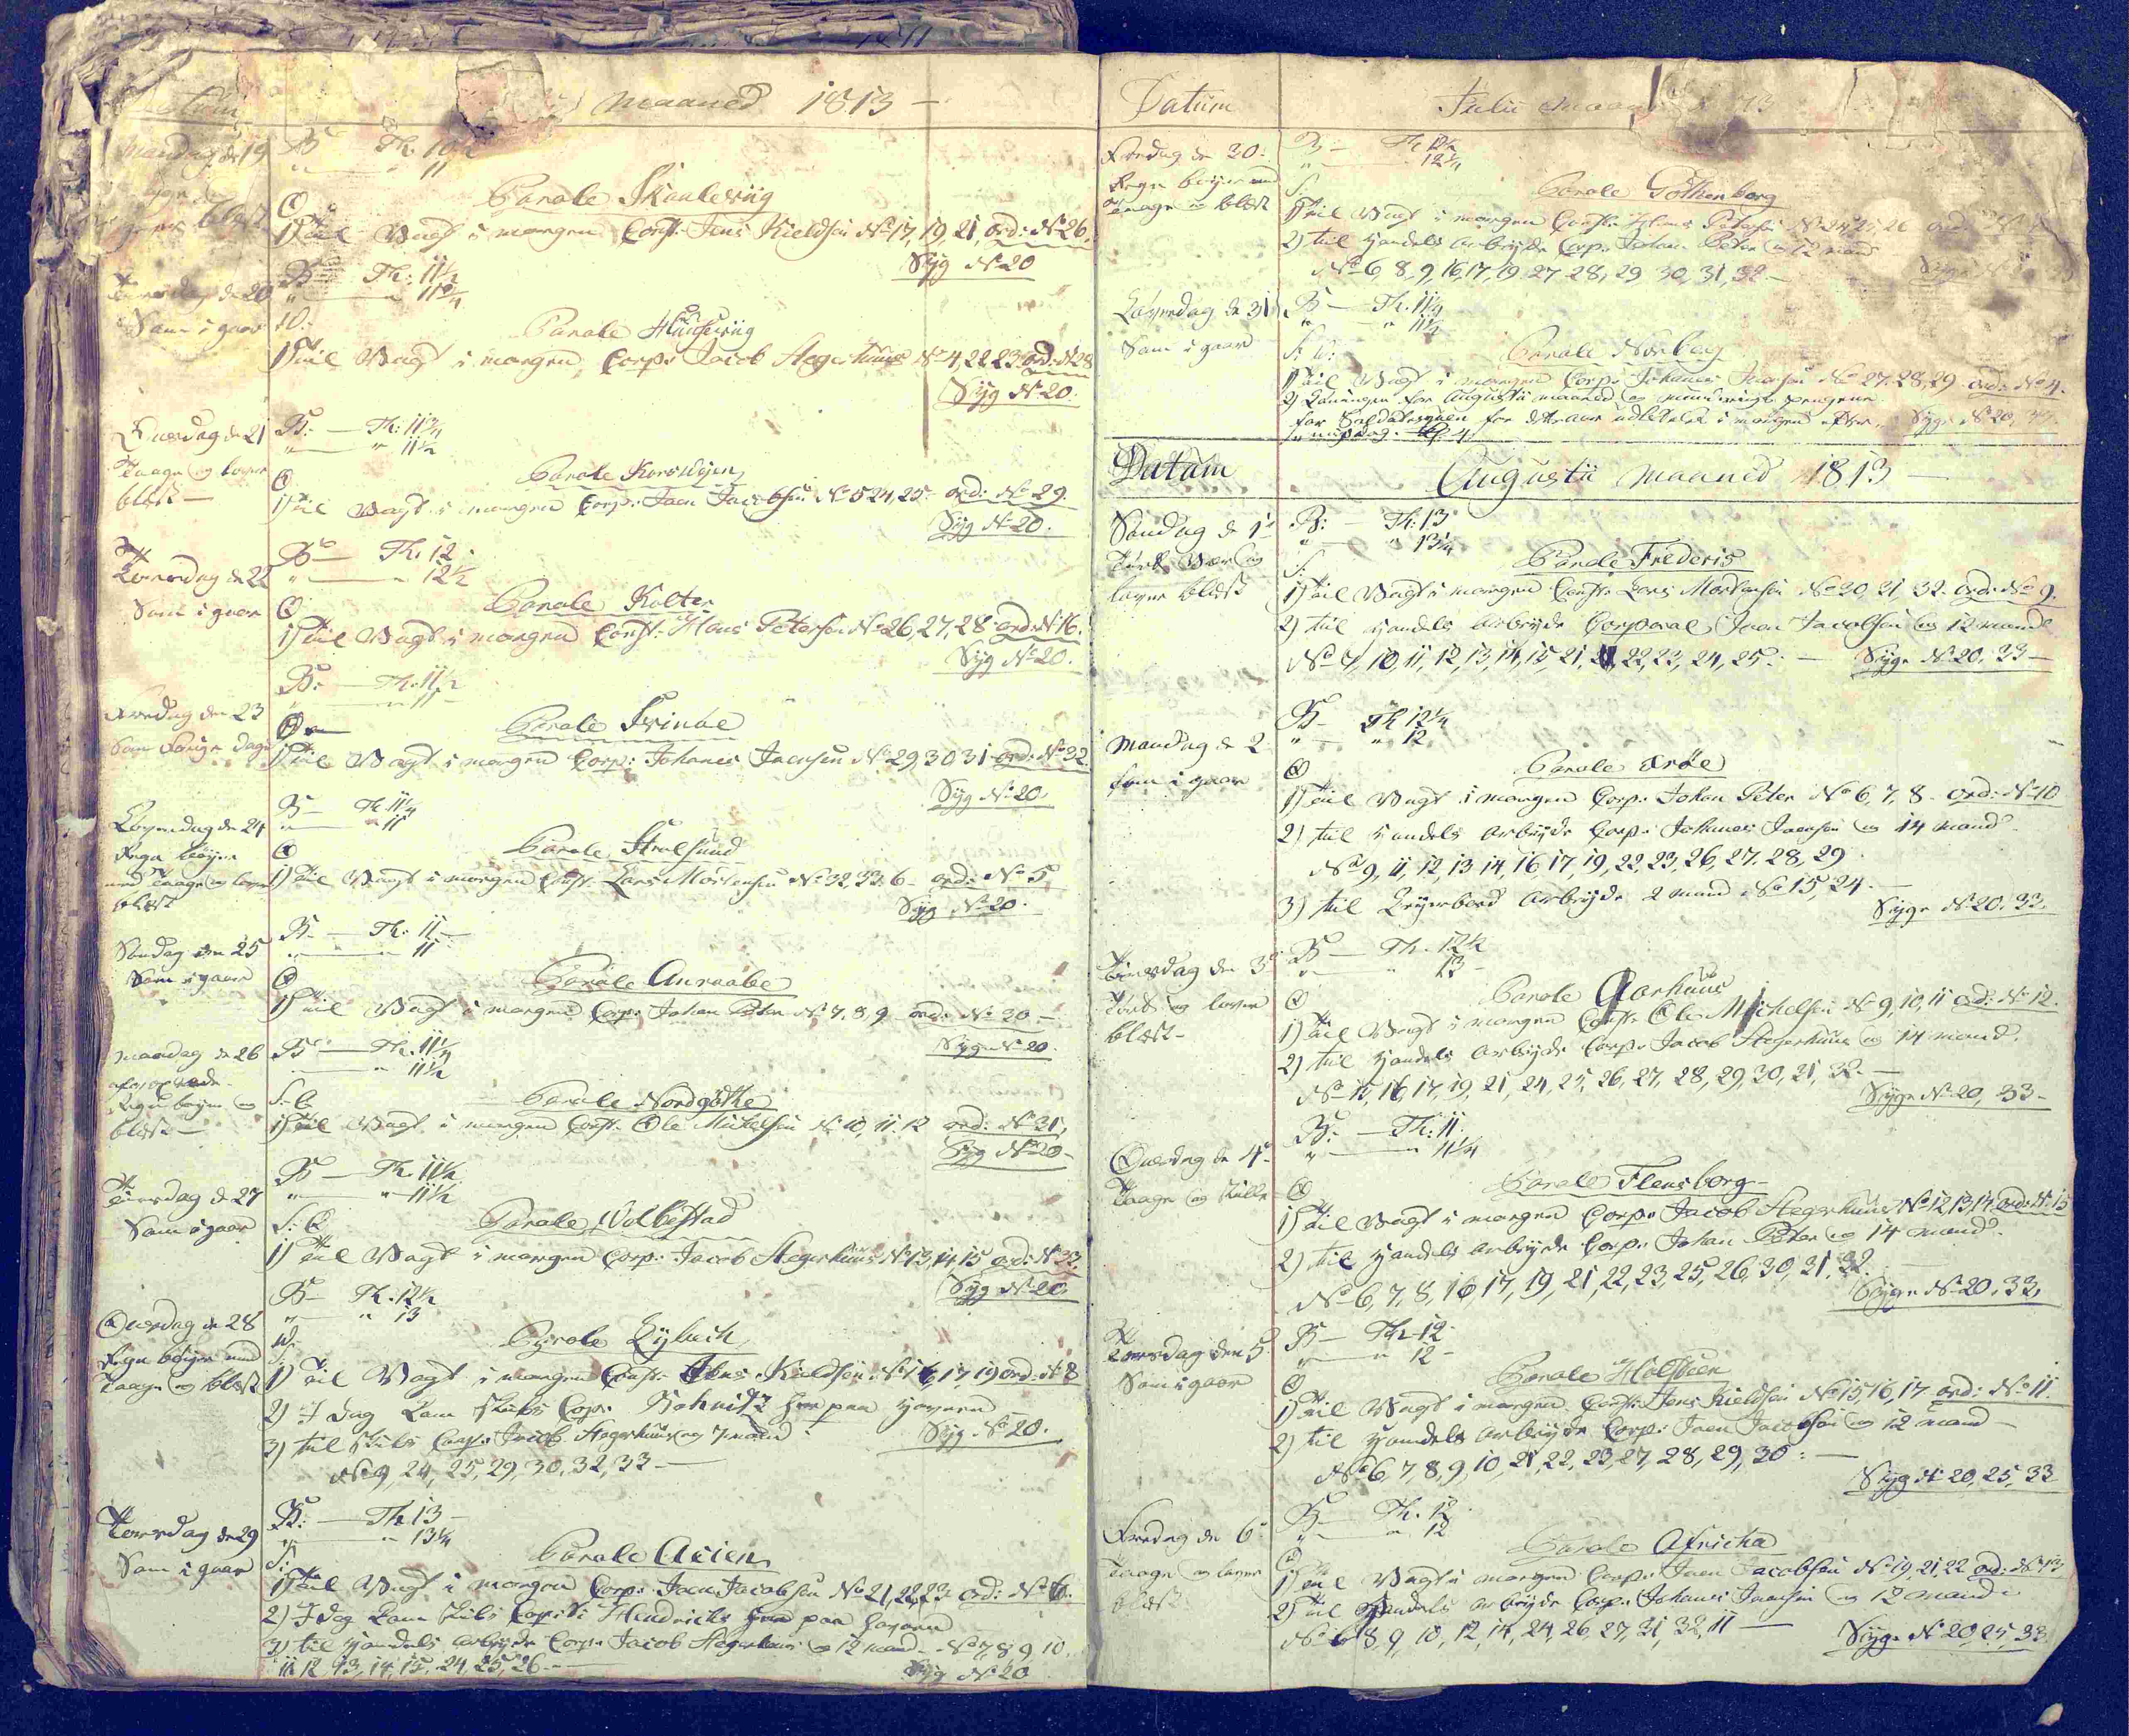 Datum
maaned 1813 —
Mandag d 19
B Th. 10½
" — " 11
Parole Skaaleviig
1) Til Vagt i morgen Const. Jens Kieldsen No 17, 19, 21, ord: No 26.
Syg No 20
Tiirsdag de 20
Som i gaar
B Th: 11½
" — " 11¾
Parole
1) Til Vagt i morgen, Corp: Jacob Hegerhuus No 4, 22, 23 ord: No 28
Syg No 20.
Onsdag de 21
Taage og laver
blæst —
B: — Th: 11¾
" — " 11½
Parole Korsløyen
1) Til Vagt i morgen Corp: Joen Jacobsen No 5, 24, 25. ord: No 29.
Syg No 20.
Torsdag de 22
Som i gaar
B — Th. 12
" — " 12½
Parole Kolter
1) Til Vagt i morgen Const. Hans Petersen No 26, 27, 28 ord: No 16.
Syg No 20.
Fredag den 23
Som Forige Dage
B: — Th: 11½
" — " 11 —
Parole Svinöe
1) Til Vagt i morgen Corp: Johanes Joensen No 29 30 31 ord: No 32.
Syg No 20.
Löverdag de 24
Regn bøyer
med Taage og laver
blæst
B — Th 11¼
" — " 11
Parole Stralsund
1) Til Vagt i morgen Const. Lars Mortensen No 32, 33, 6 — ord: No 5
Syg No 20.
Söndag den 25
Som i gaar
B — Th: 11 —
" — " 11
Parole Anraabe
1) Til Vagt i morgen Corp: Johan Peter No 7, 8, 9 ord: No 30 —
Syg No 20.
Mandag de 26
Regn bøyer og
blæst —
B — Th. 11¼
" — " 11½
Parole Nordgöthe
1) Til Vagt i morgen Const. Ole Mickelsen No 10, 11, 12 ord: No 31,
Syg No 20 —
Tiirsdag d 27
Som i gaar
B — Th. 11½
" — " 11½
Parole Wolbestad
1) Til Vagt i morgen Corp: Jacob Hegerhuus No 13, 14, 15 ord: No 33,
Syg No 20.
Onsdag de 28
Regn bøyer med
Taage og blæst
B — Th. 12½
" — " 13
Parole Lybech
1) Til Vagt i morgen Const. Jens Kieldsen No 16, 17, 19 ord: No 8
2) I dag Kom Skibs Cap: Bohnitz her paa havnen
Syg No 20.
3) til Skibs Corp: Jacob Hegerhuus og 7 mand
No 9, 24, 25, 29, 30, 32, 33 —
Torsdag de 29
Som i gaar
B: — Th 13 —
" — " 13¼
Parole Asien
1) Til Vagt i morgen Corp: Joen Jacobsen No 21, 22, 23 ord: No 6.
2) I dag Kom Skibs Cap: Hendricks her paa havnen
3) til Handels Arbeyde Corp: Jacob Hegerhuus og 12 mand — No 7, 8, 9, 10,
11, 12, 13, 14, 15, 24, 25, 26 —
Syg No 20
Datum
Julii Maaned 1813
Fredag de 30.
Regn bøyer med
Taage og blæst
B — Th 12½
" — " 12¼
Parole Gothenborg
1) Til Vagt i morgen Const. Hans Petersen No 24, 25, 26 ord: No
2) til Handels Arbeyde Corp: Johan Peter og 12 mand
No 6, 8, 9, 16, 17, 19, 27, 28, 29, 30, 31, 32 —
Syge No
Löverdag de 31
Som i gaar
B — Th. 11¼
" — " 11½
Parole Norberg
1) Til Vagt i morgen Corp: Johanes Joensen No 27, 28, 29 ord: No 4.
2) Löningen for Augustii maaned og munderings pengene
for Soldatesquen for dette aar udbetales i morgen efter
middag
Syge No 20, 33
Datum
Augustii Maaned 1813 —
Söndag d 1
Tört Vær og
laver blæst
B: — Th: 13
" — " 13¼
Parole Frederis
1) Til Vagt i morgen Const. Lars Mortensen No 30, 31, 32. ord: No 9.
2) til Handels Arbeyde Corporal Joen Jacobsen og 12 mand
No 7, 10, 11, 12, 13, 14, 15, 21, 22, 23, 24, 25: —
Syge No 20, 33 —
Mandag de 2
som i gaar
B — Th 12¼
" — " 12
Parole Æröe
1) Til Vagt i morgen Corp: Johan Peter No 6, 7, 8. ord: No 10
2) til Handels Arbeyde Corp: Johanes Joensen og 14 mand
No 9, 11, 12, 13, 14, 16, 17, 19, 22, 23, 26, 27, 28, 29
3) til Arbeyde 2 mand No 15, 24. —
Syge No 20, 33.
Tiirsdag den 3
Tört og laver
blæst —
B — Th. 12½
" — " 13 —
Parole Aarhuus
1) Til Vagt i morgen Const. Ole Michelsen No 9, 10, 11 ord: No 12.
2) til Handels Arbeyde Corp: Jacob Hegerhuus og 14 mand.
No 15, 16, 17, 19, 21, 24, 25, 26, 27, 28, 29, 30, 31, 32. —
Syge No 20, 33 —
Onsdag de 4
Taage og Stille
B: — Th: 11.
" — " 11¼
Parole Flensborg —
1) Til Vagt i morgen Corp: Jacob Hegerhuus No 12, 13, 14 ord: No 15
2) til Handels Arbeyde Corp: Johan Peter og 14 mand.
No 6, 7, 8, 16, 17, 19, 21, 22, 23, 25, 26, 30, 31, 32.
Syge No 20, 33.
Torsdag den 5
Som i gaar
B — Th 12 —
" — " 12 —
Parole Holsteen
1) Til Vagt i morgen Const. Jens Kieldsen No 15, 16, 17 ord: No 11.
2) til Handels Arbeyde Corp: Joen Jacobsen og 12 mand —
No 6, 7, 8, 9, 10, 21, 22, 23, 27, 28, 29, 30: —
Syg No 20, 25, 33
Fredag de 6
Taage og laver
blæst
B — Th. 12
" — " 12
Parole Africha
1) Til Vagt i morgen Corp: Joen Jacobsen No 19, 21, 22 ord: No 13
2) til Handels Arbeyde Corp: Johanes Joensen og 12 mand
No 6, 8, 9, 10, 12, 14, 24, 26, 27, 31, 32, 11 —
Syge No 20, 25, 33